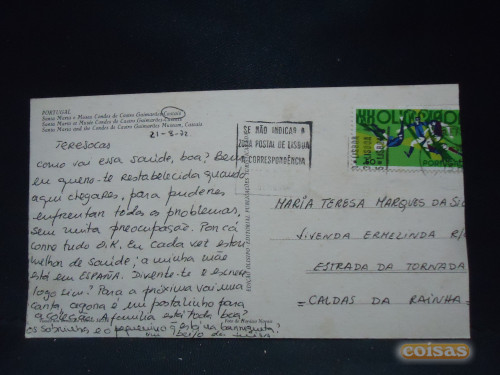 PORTUGAL
Santa Marta e Museu Condes de Castro Guimarães, Cascais
Santa Marta et Musée Condes de Castro Guimarães, Cascais
Santa Marta and the Condes de Castro Guimarães Museum, Cascais
21-8-72
TERESOCAS
como vai essa saúde, boa? Bem
eu quero-te restabelecida quando
aqui chegares, para puderes
enfrentar todos os problemas,
sem muita preocupação. Por cá
corre tudo O.K. Eu cada vez estou
melhor de saúde; a minha mãe
está em ESPAÑA. Diverte-te e escreve
logo sim? Para a próxima vai uma
carta, agora é um postalinho para
a coleção. A família está toda boa?
os sobrinhos e o pequenino q está na barriguita?
um beijo da
SE NÃO INDICAR A
ZONA POSTAL DE LISBOA
CORRESPONDÊNCIA
XX OLYMPIADA
MARIA TERESA MARQUES DA
VIVENDA ERMELINDA R/
ESTRADA DA TORNADA
= CALDAS DA RAINHA =
coisas